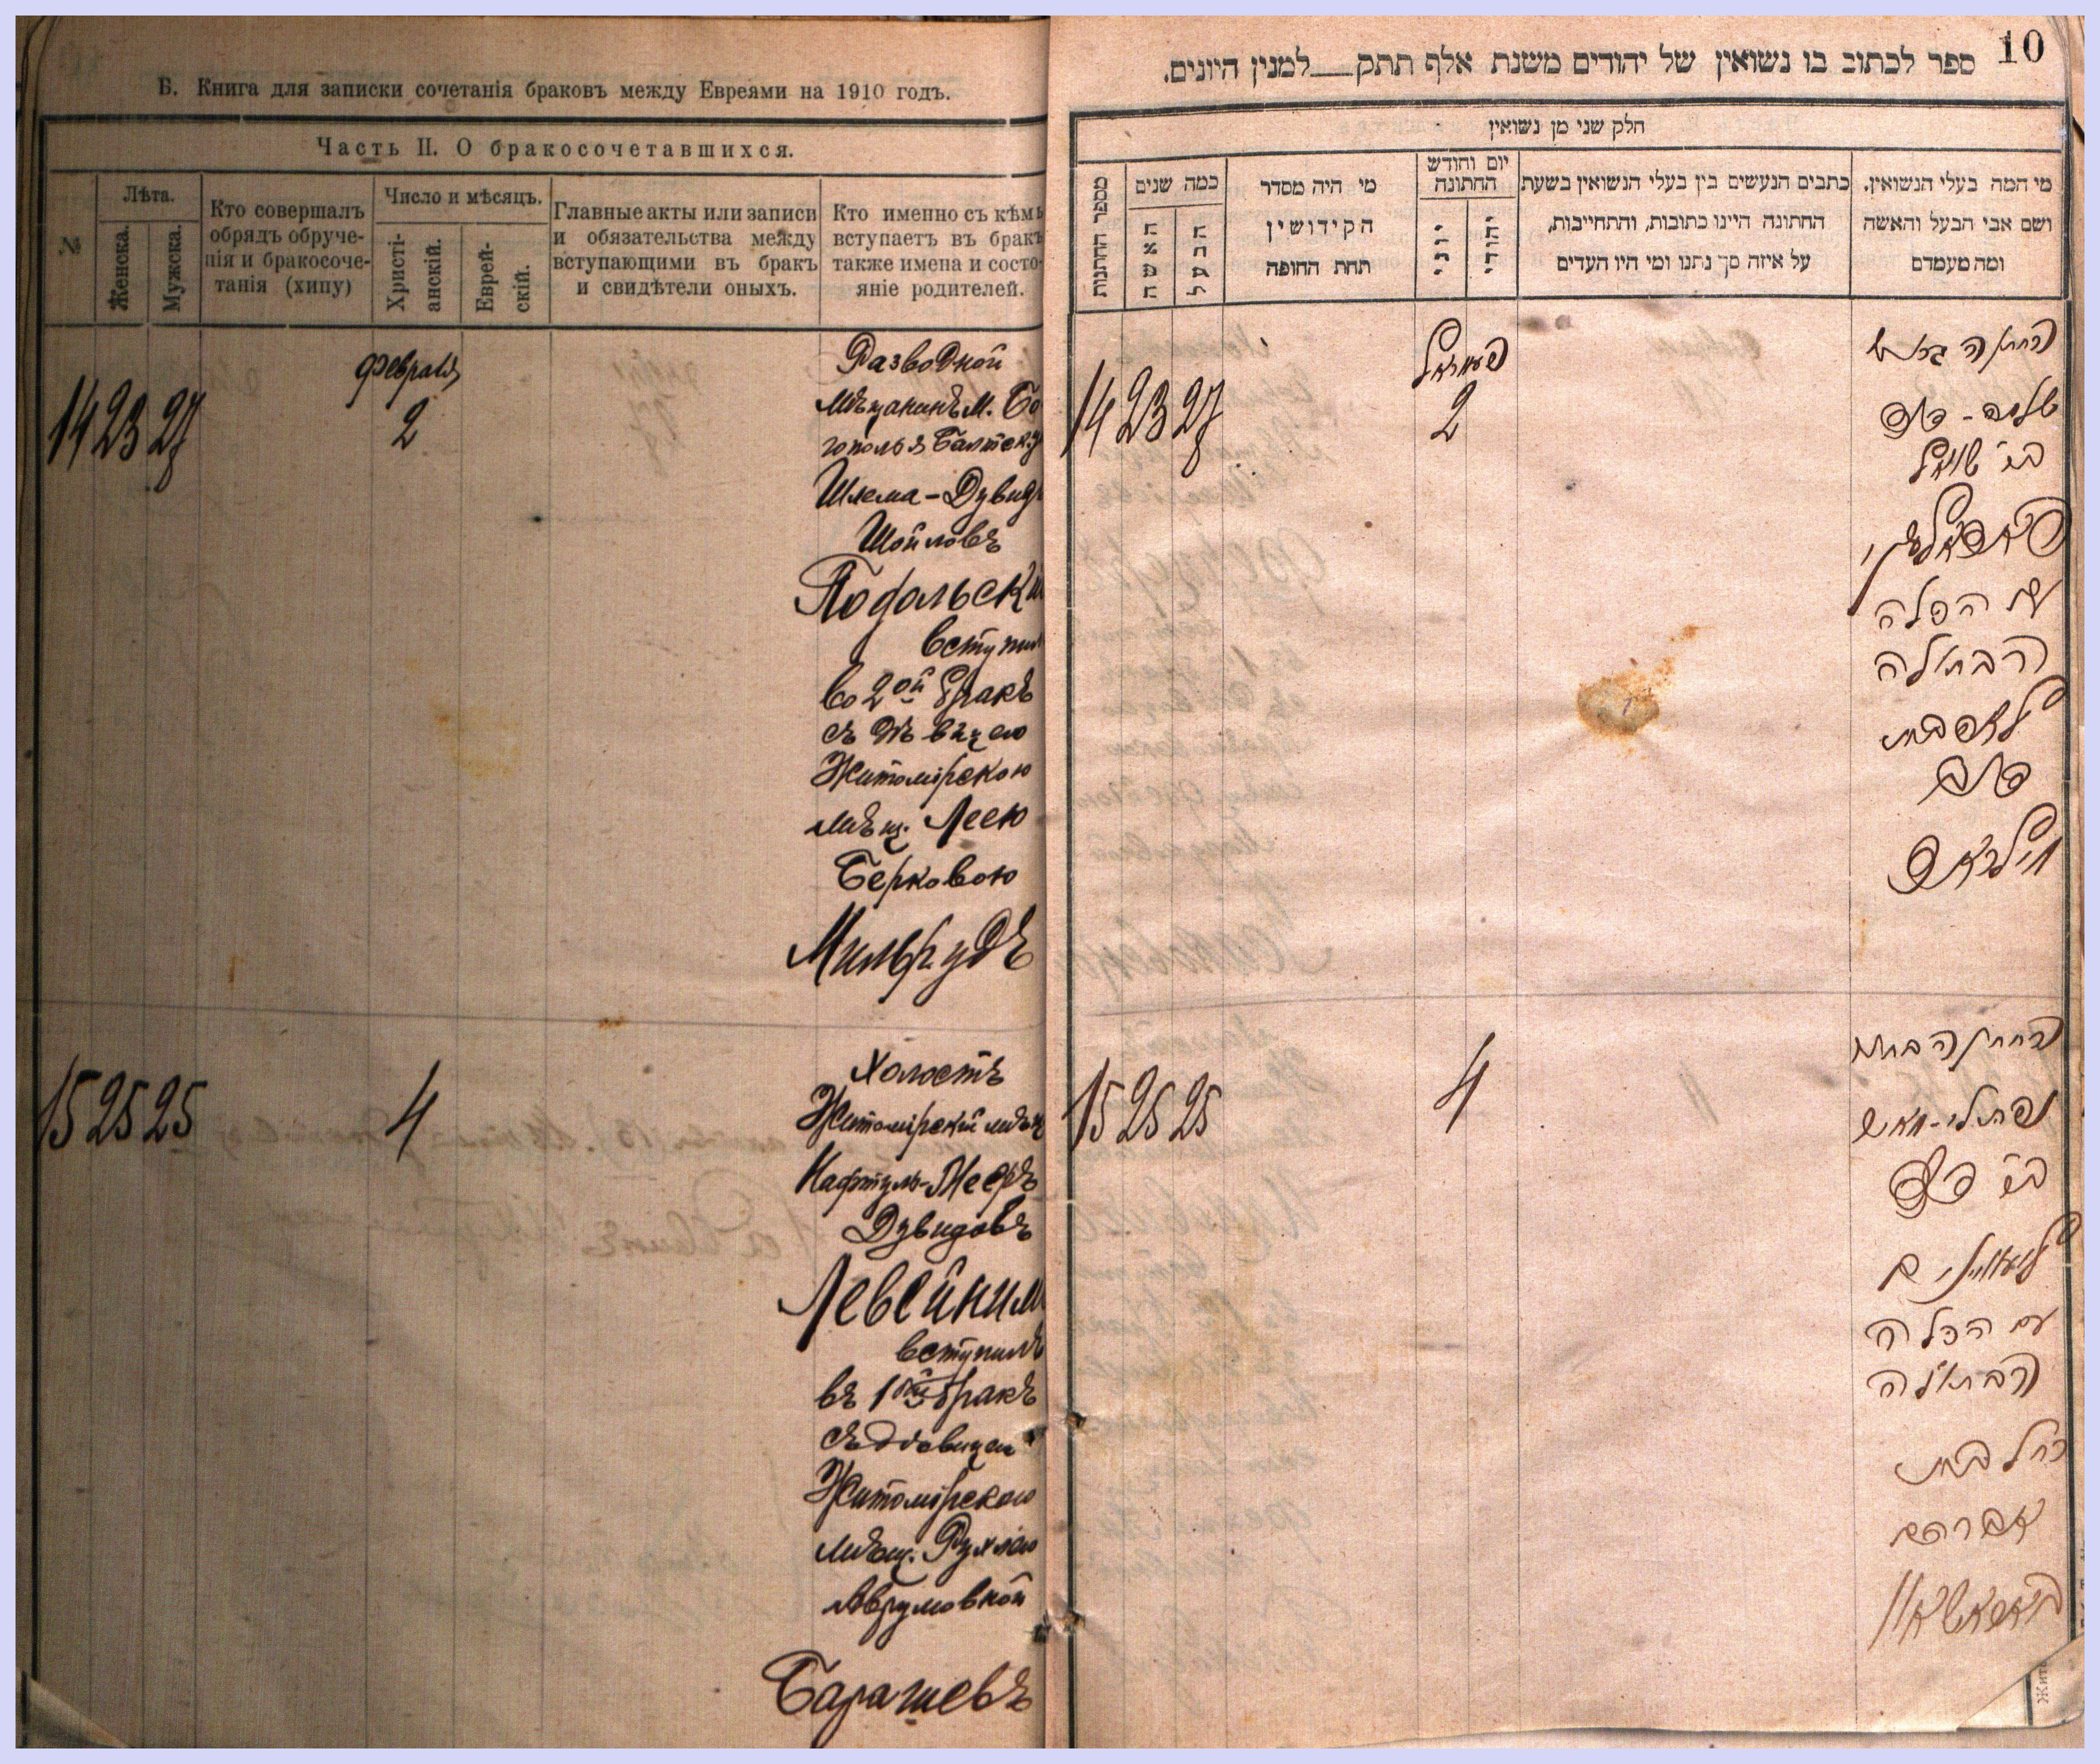 Б. Книга для записки сочетанія браковъ между Евреями на 1910 годъ.
Часть II. О бракосочетавшихся.
№
Лѣта.
Женска.
Мужска.
Кто совершалъ
обрядъ обруче-
нія и бракосоче-
танія (хипу)
Число и мѣсяцъ.
Христі-
анскій.
Еврей-
скій.
Главные акты или записи
и обязательства между
вступающими въ бракъ
и свидѣтели оныхъ.
Кто именно съ кѣмъ
вступаетъ въ бракъ
также имена и состо-
яніе родителей.
14 23 27
Февраля
2
Разводной
Мѣщанинъ М. Бо
гополья Балтск. у
Шлема-Дувидъ
Шойловъ
Подольскі
вступил
во 2ой бракъ
съ дѣвицею
Житомірскою
мѣщ. Леею
Берковою
Мильрудъ
15 25 25
4
Холостъ
Житомірскій мѣщ
Нафтуль-Мееръ
Дувидовъ
Левейким
вступилъ
въ 1ый бракъ
съ дѣвицею
Житомірскою
мѣщ. Рухлею
Аврумовной
Барашевъ
10
ספר לכתוב בו נשואין של יהודים משנת אלף תתק למנין היונים.
חלק שני מן נשואין
מספר החתנות
כמה שנים
האשה
הבעל
מי היה מסדר
הקידושין
תחת החופה
יום וחודש
החתונה
יוני
יהודי
כתבים הנעשים בין בעלי הנשואין בשעת
החתונה היינו כתובות, והתחייבות,
על איזה סך נתנו ומי היו העדים
מי המה בעלי הנשואין.
ושם אבי הבעל והאשה
ומה מעמדם
14 23 27
פעווראל
2
החתן הגרוש
שלמה - דוד
בר׳ שאול
פאדאלסקי
עם הכלה
הבתולה
לאה בת
דוב
מילראד
15 25 25
4
החתן הבחור
נפתלי-מאיר
בר׳ דוד
עם הכלה
הבתולה
רחל בת
אברהם